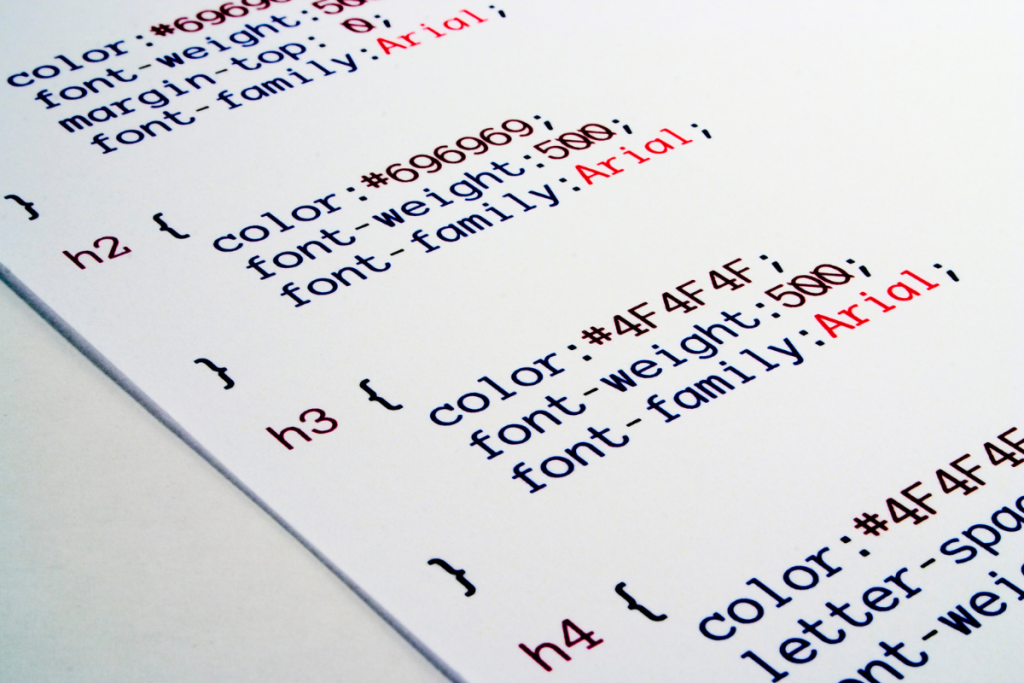 color:#6969
font-weight:500
margin-top: 0;
font-family:Arial;
}
h2 {
color:#696969;
font-weight:500;
font-family:Arial;
}
h3 {
color:#4F4F4F;
font-weight:500;
font-family:Arial;
}
h4 {
color:#4F4F4F
letter-spac
ont-wei